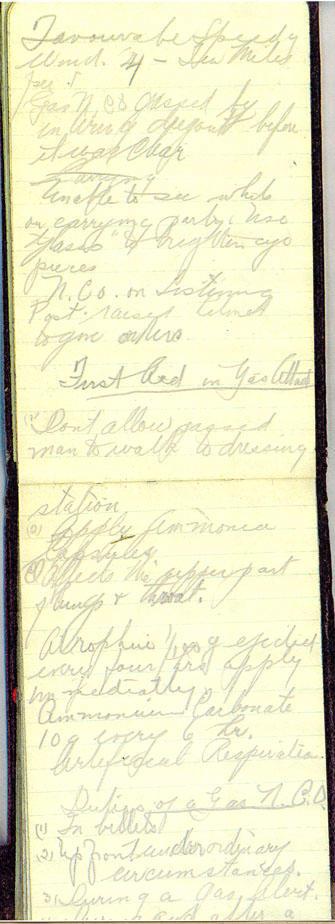 Favourabe Speedy
Wind. 4 - Ten Miles
per
Gas N.C.O gassed by
in wring dugout before
it was Clear
Carrying
Unable to see while
on carrying party. Use
Glasso to brighten eye
pieces
N.Co. on Listening
Post. raised helmet
to give orders
First Aed in Gas Attack
(1) Dont allow gassed
man to walk to dressing
station
(2) Apply Ammonia
Capsules
(3) Effects the upper part
of lungs & throat.
Atrophine 1/100 g ejected
every four hrs apply
immediatly.
Ammonium Carbonate
10 g every 6 hr.
Artefical Respiratio
Duties of a Gas N.C.O
(1) In billets
(2) Up front under ordinary
circumstances.
3) During a Gas Alert.
during and after a